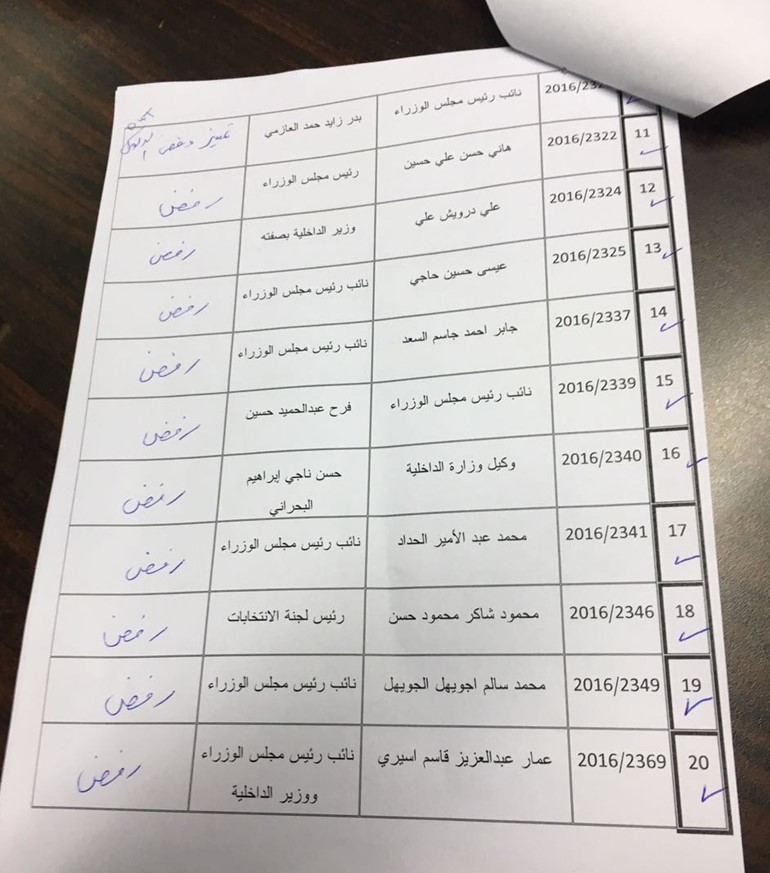 2016/232 نائب رئيس مجلس الوزراء بدر زايد حمد العازمي تمييز رفض
11 2016/2322 هاني حسن علي حسين رئيس مجلس الوزراء رفض
12 2016/2324 علي درويش علي وزير الداخلية بصفته رفض
13 2016/2325 عيسى حسين حاجي نائب رئيس مجلس الوزراء رفض
14 2016/2337 جابر احمد جاسم السعد نائب رئيس مجلس الوزراء رفض
15 2016/2339 نائب رئيس مجلس الوزراء فرح عبدالحميد حسين رفض
16 2016/2340 وكيل وزارة الداخلية حسن ناجي إبراهيم
البحراني رفض
17 2016/2341 محمد عبد الأمير الحداد نائب رئيس مجلس الوزراء رفض
18 2016/2346 محمود شاكر محمود حسن رئيس لجنة الانتخابات رفض
19 2016/2349 محمد سالم اجويهل الجويهل نائب رئيس مجلس الوزراء رفض
20 2016/2369 عمار عبدالعزيز قاسم اسيري نائب رئيس مجلس الوزراء
ووزير الداخلية رفض